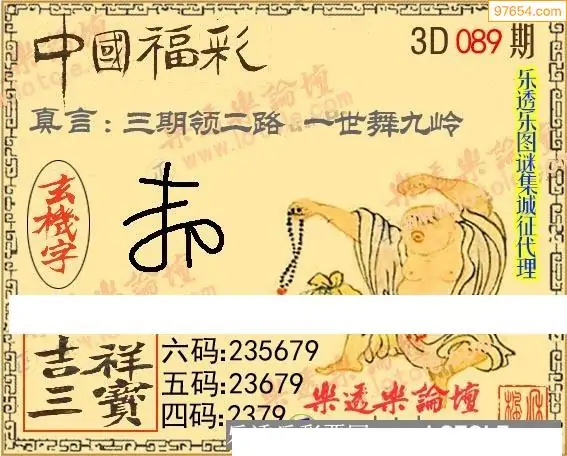 97654.com
中國福彩
3D 089 期
真言：三期领二路 一世舞九岭
玄機字
乐透乐图谜集诚征代理
吉祥三寳
六码:235679
五码:23679
四码:2379
樂透樂論壇